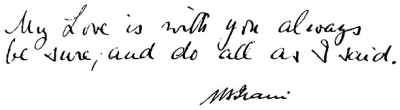 My Love is with you always
be sure, and do all as I said.